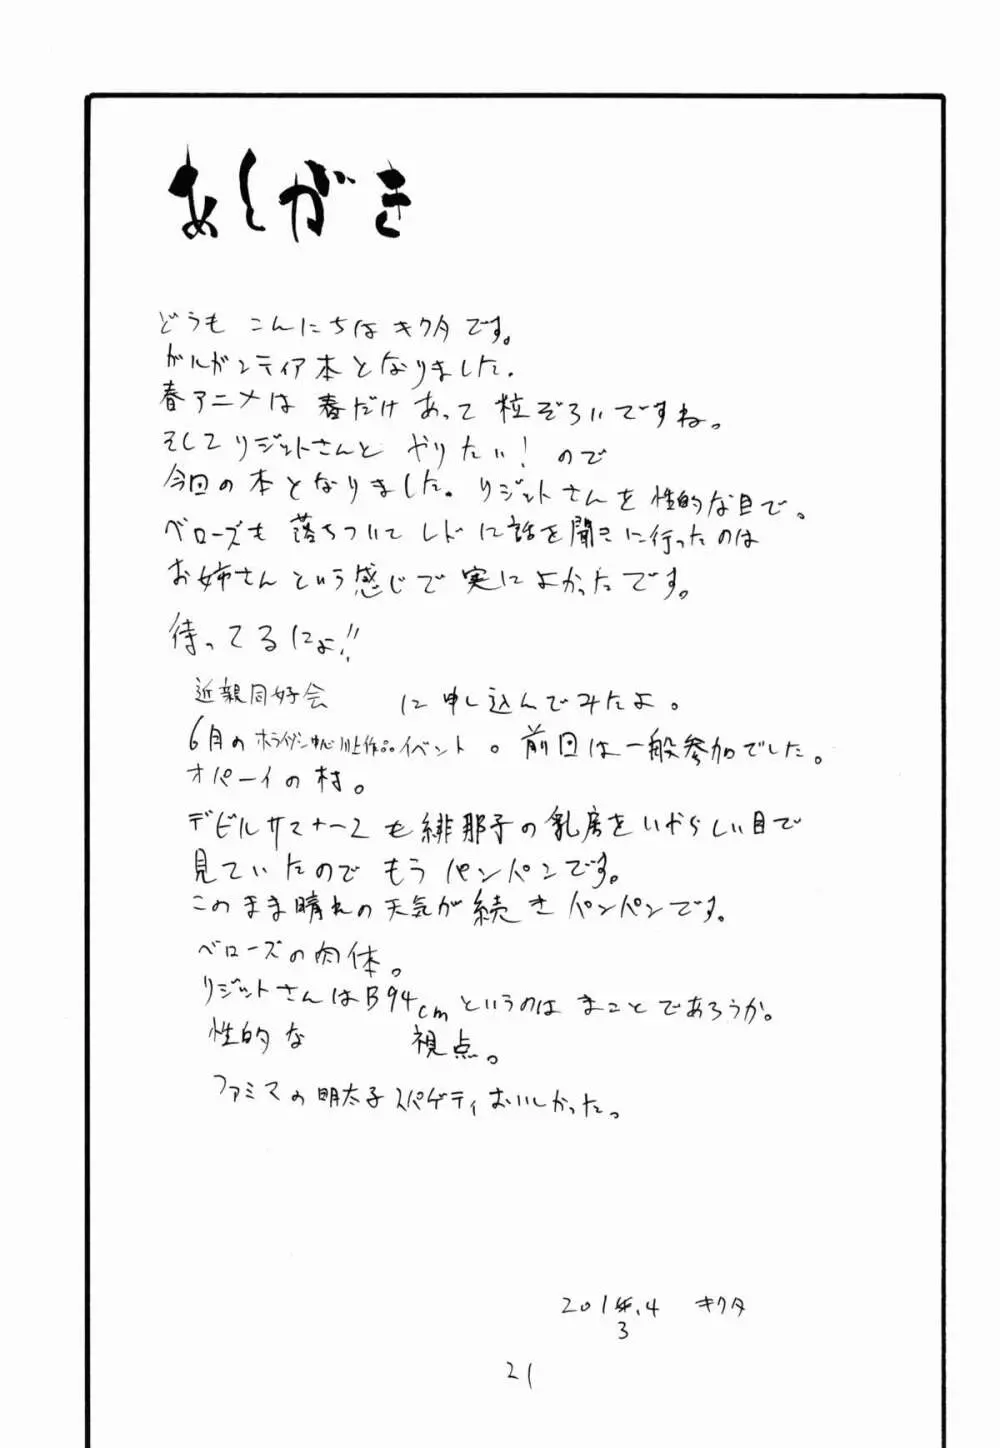 あとがき
どうも こんにちは キクタです。
ガルガンティア本となりました。
春アニメは 春だけあって 粒ぞろいですね。
そしてリジットさんと やりたい！ ので
今回の本となりました。リジットさんを性的な目で。
ベローズも 落ちついて レドに話を聞きに行ったのは
お姉さんという感じで 実によかったです。
待ってるにょ!!
近親同好会 に申し込んでみたよ。
6月のホライゾン中心川上作品イベント。前回は一般参加でした。
オパーイの村。
デビルサマナー2も緋那子の乳房をいやらしい目で
見ていたので もうパンパンです。
このまま晴れの天気が続きパンパンです。
ベローズの肉体。
リジットさんはB94cmというのは まことであろうか。
性的な 視点。
ファミマの明太子スパゲティおいしかった。
201年.4 キクタ
3
21